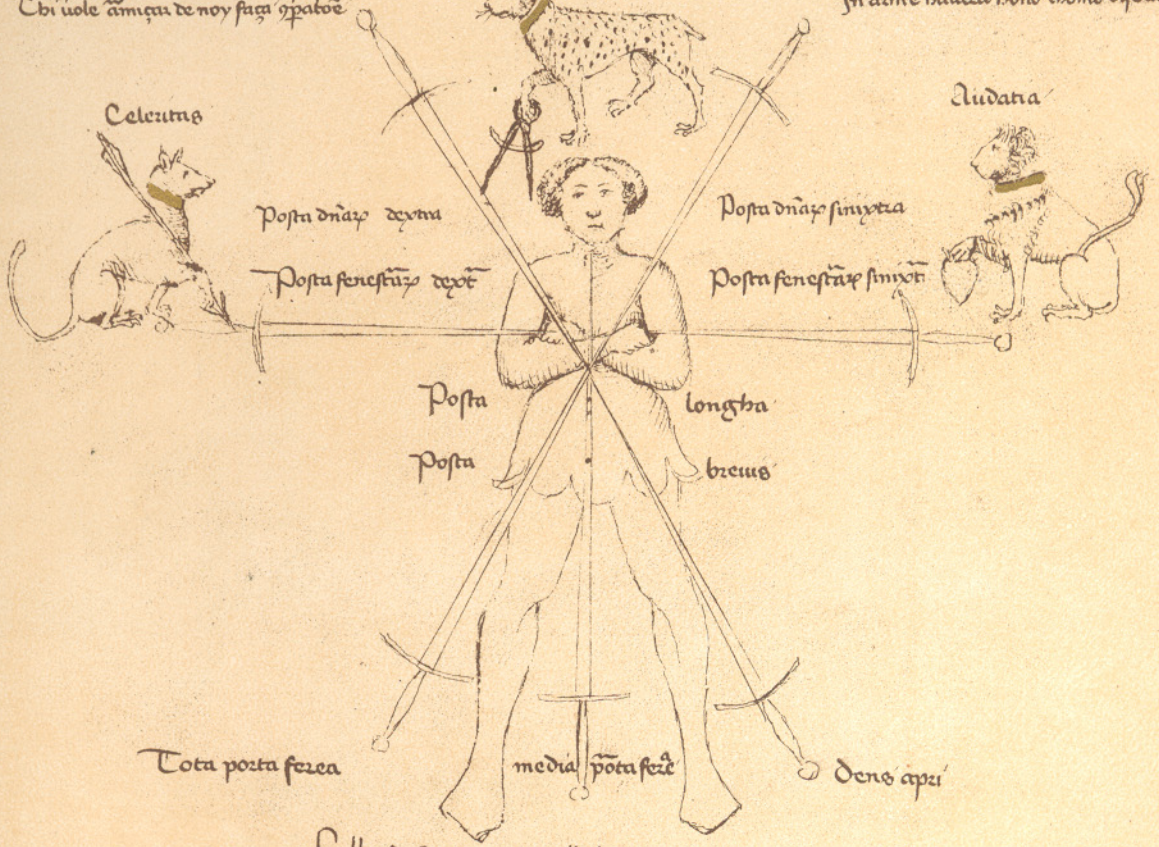 Chi vole amiçar de noy faça
In arme
Celeritas
Audatia
Posta dn̄aꝝ dextra
Posta dn̄aꝝ sinixtra
Posta fenestāꝝ dext̄
Posta fenestāꝝ sinixt̄
Posta longha
Posta brevis
Tota porta ferea
media pōta fere
dens apri